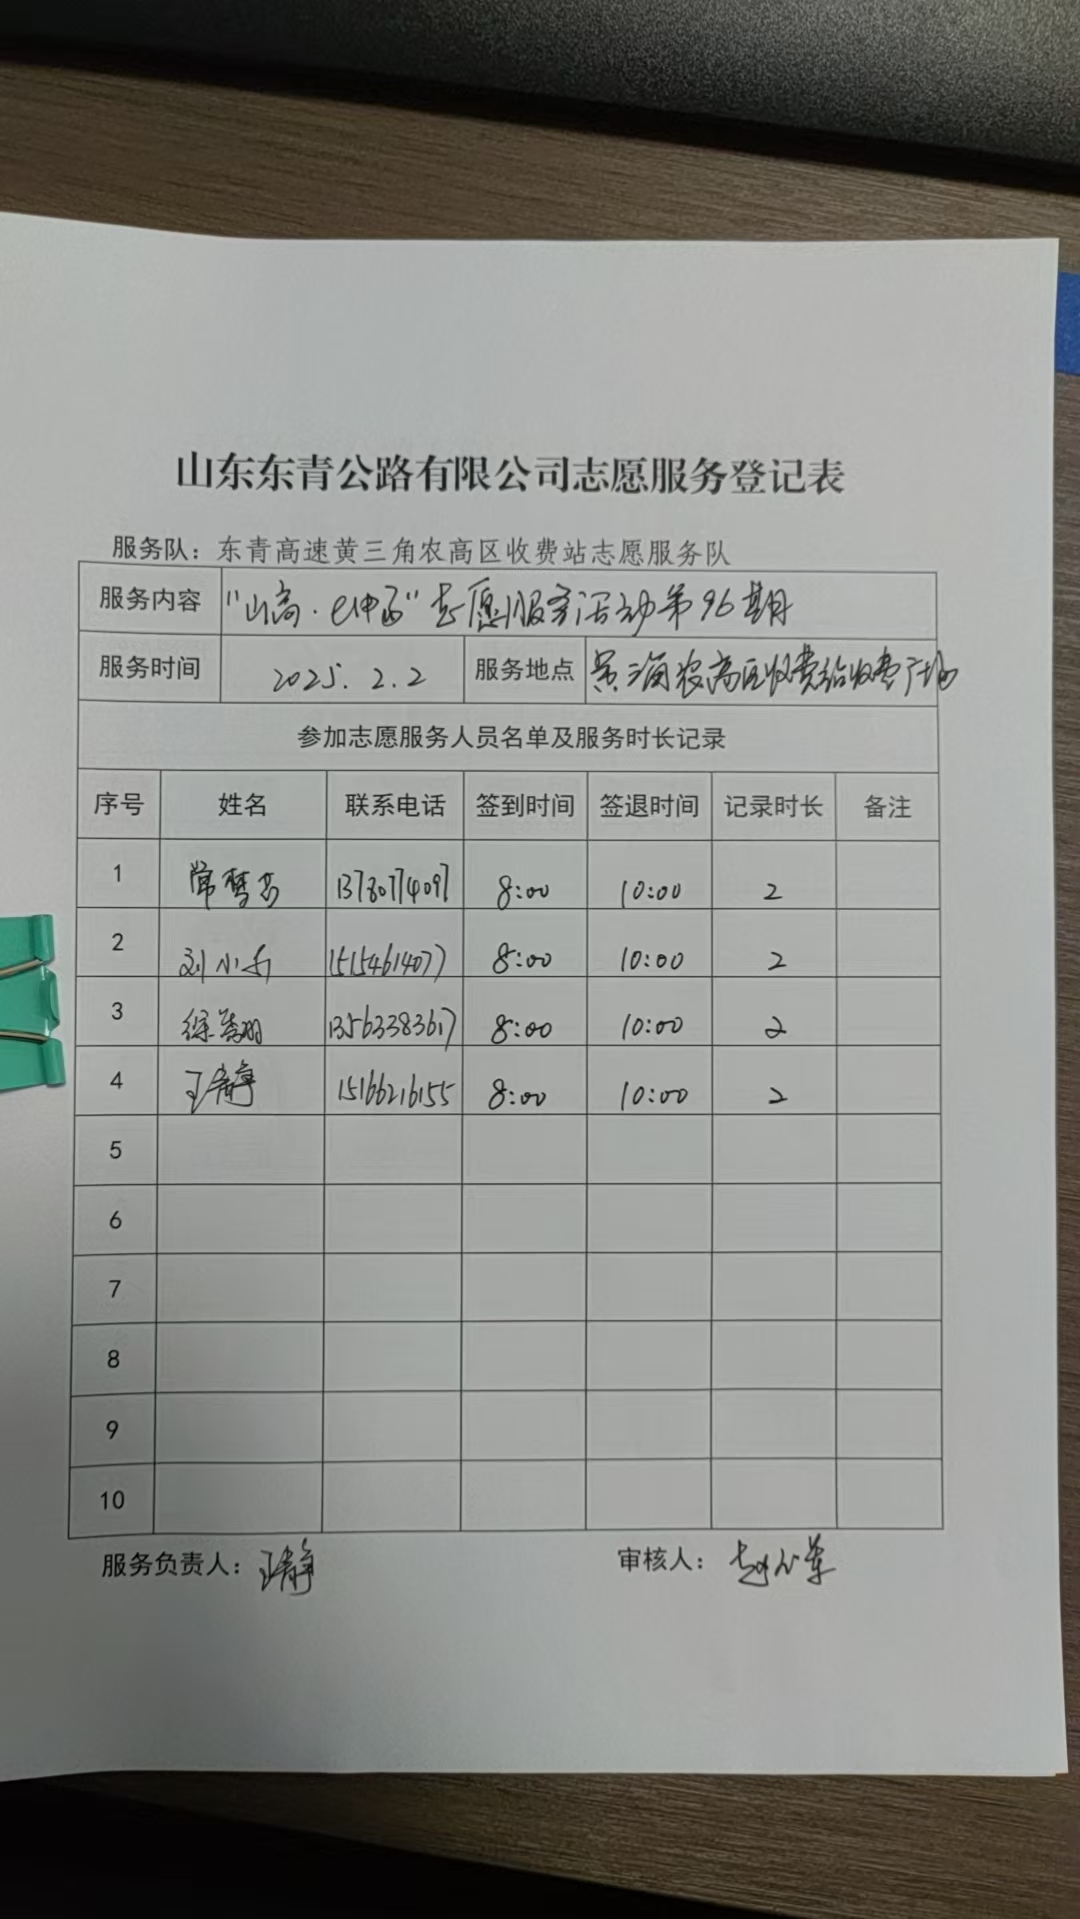 山东东青公路有限公司志愿服务登记表
服务队：东青高速黄三角农高区收费站志愿服务队
服务内容 "山高·e伸函"志愿服务活动第96期
服务时间 2025.2.2 服务地点 黄三角农高区收费站收费广场
参加志愿服务人员名单及服务时长记录
序号 姓名 联系电话 签到时间 签退时间 记录时长 备注
1 常梦 13780774097 8:00 10:00 2
2 刘小 15154614077 8:00 10:00 2
3 徐 13563383617 8:00 10:00 2
4 王静 15166216155 8:00 10:00 2
5
6
7
8
9
10
服务负责人：王静 审核人：赵小草